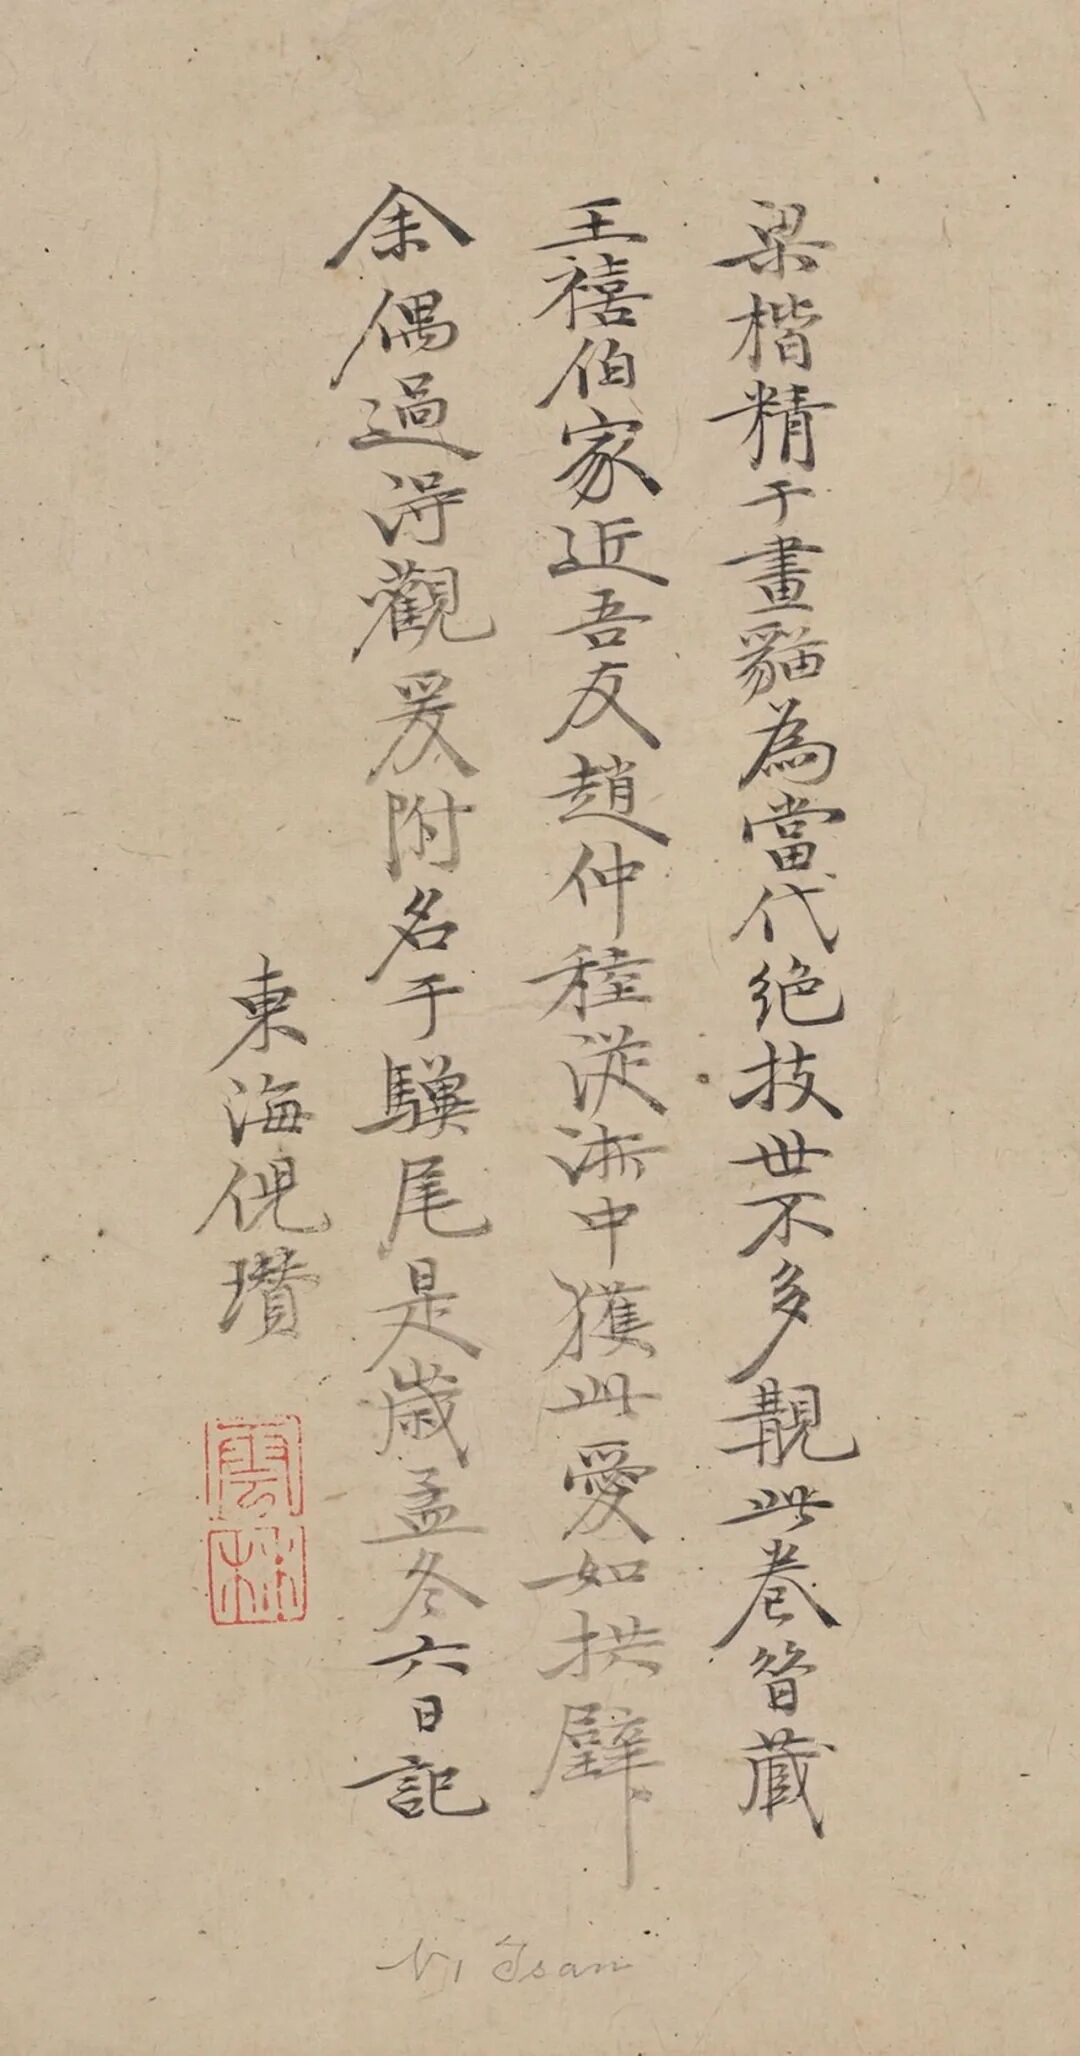 梁楷精于畫貓為當代绝技世不多覯此卷昝藏
王禧伯家近吾友趙仲穜泛淛中獲此愛如拱璧
余偶過淂觀爰附名于驥尾是歲孟冬六日記
東海倪瓚
雲林
Ni Tsan